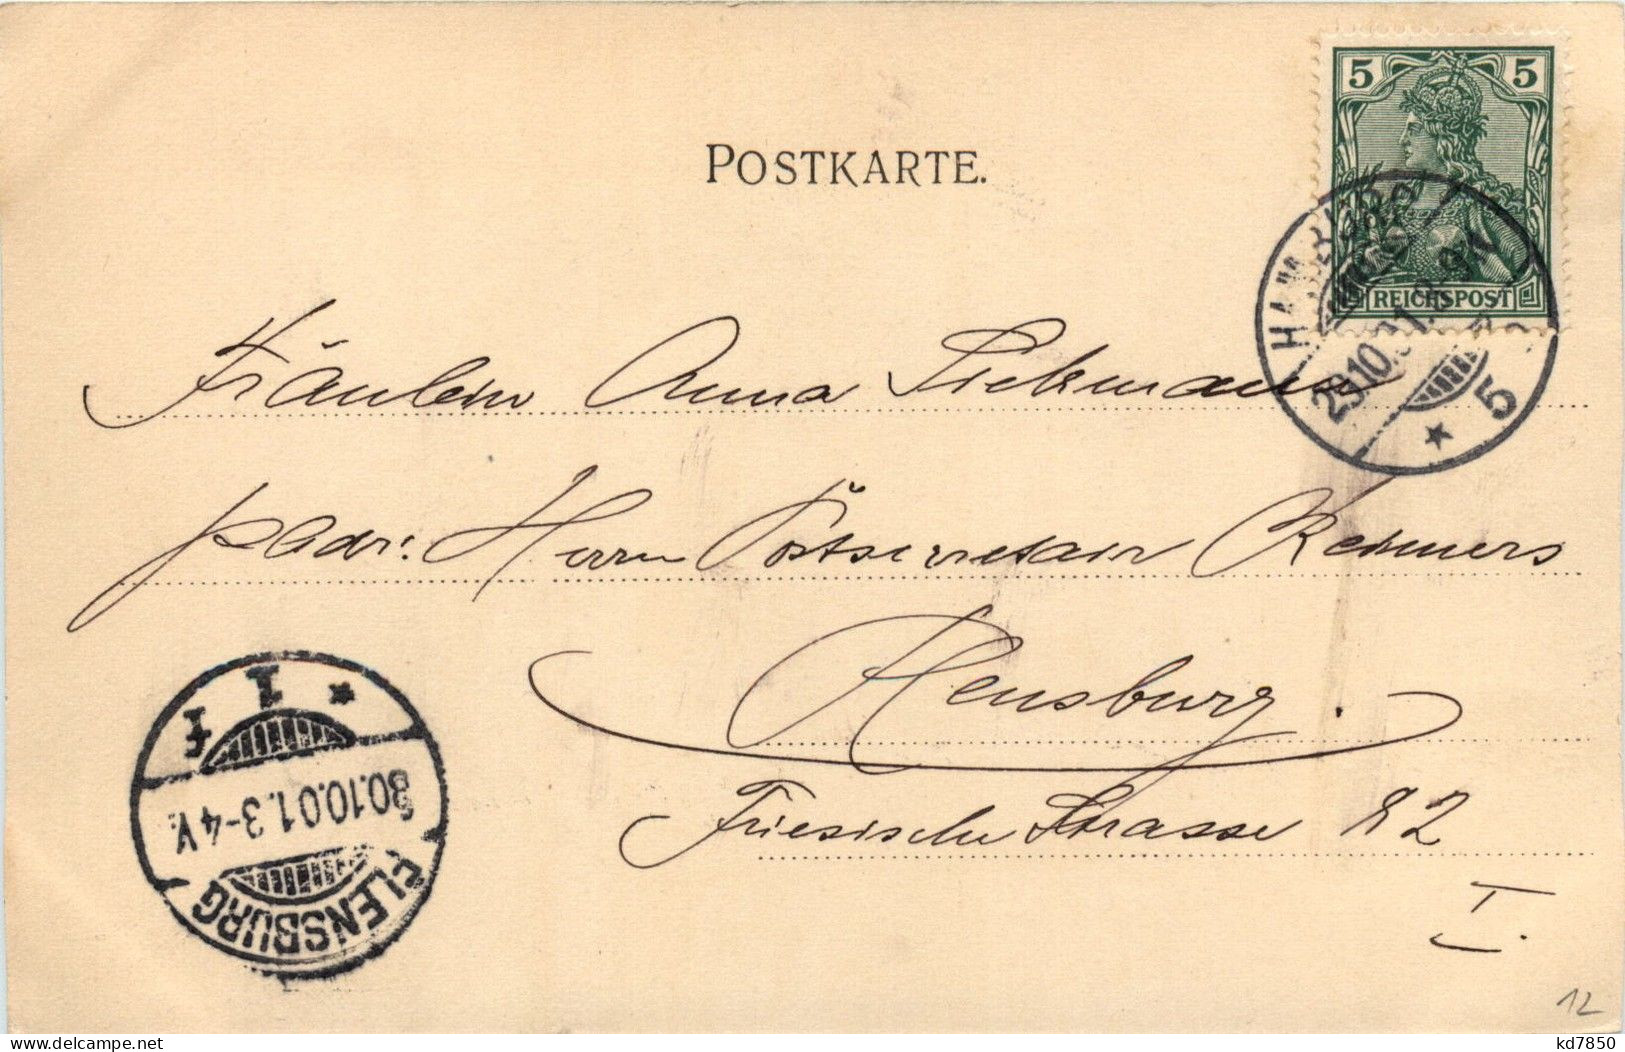 5 5
POSTKARTE.
REICHSPOST
HAMBURG
29.10.01. 8-9N
* 5
Fräulein Anna Siekmann
p. Adr: Herrn Postsecretair Reimers
Flensburg.
Friesische Strasse 82
I.
FLENSBURG
30.10.01. 3-4 V.
* 1
12
kd7850